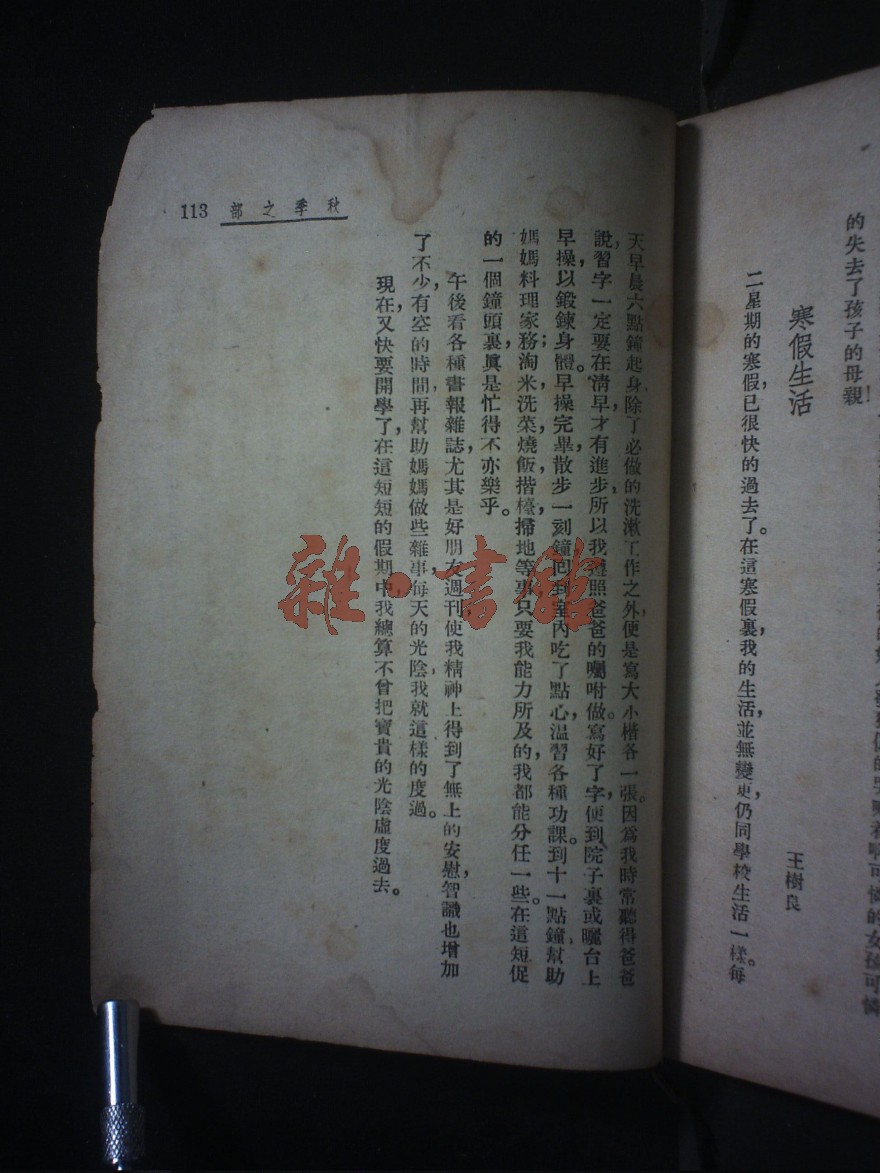 的失去了孩子的母親！
寒假生活
王樹良
二星期的寒假，已很快的過去了。在這寒假裏，我的生活，並無變更，仍同學校生活一樣。每
天早晨六點鐘起身，除了必做的洗漱工作之外，便是寫大小楷各一張。因爲我時常聽得爸爸
說，習字一定要在清早才有進步，所以我遵照爸爸的囑咐做。寫好了字，便到院子裏或曬台上
早操，以鍛鍊身體。早操完畢，散步一刻鐘，回到室內吃了點心，溫習各種功課。到十一點鐘，幫助
媽媽料理家務；淘米，洗菜，燒飯，揩檯，掃地等事，只要我能力所及的，我都能分任一些。在這短促
的一個鐘頭裏，眞是忙得不亦樂乎。
午後看各種書報雜誌，尤其是好朋友週刊，使我精神上得到了無上的安慰，智識也增加
了不少，有空的時間，再幫助媽媽做些雜事，每天的光陰，我就這樣的度過。
現在，又快要開學了，在這短短的假期中，我總算不曾把寶貴的光陰虛度過去。
秋季之部
113
雜·書館